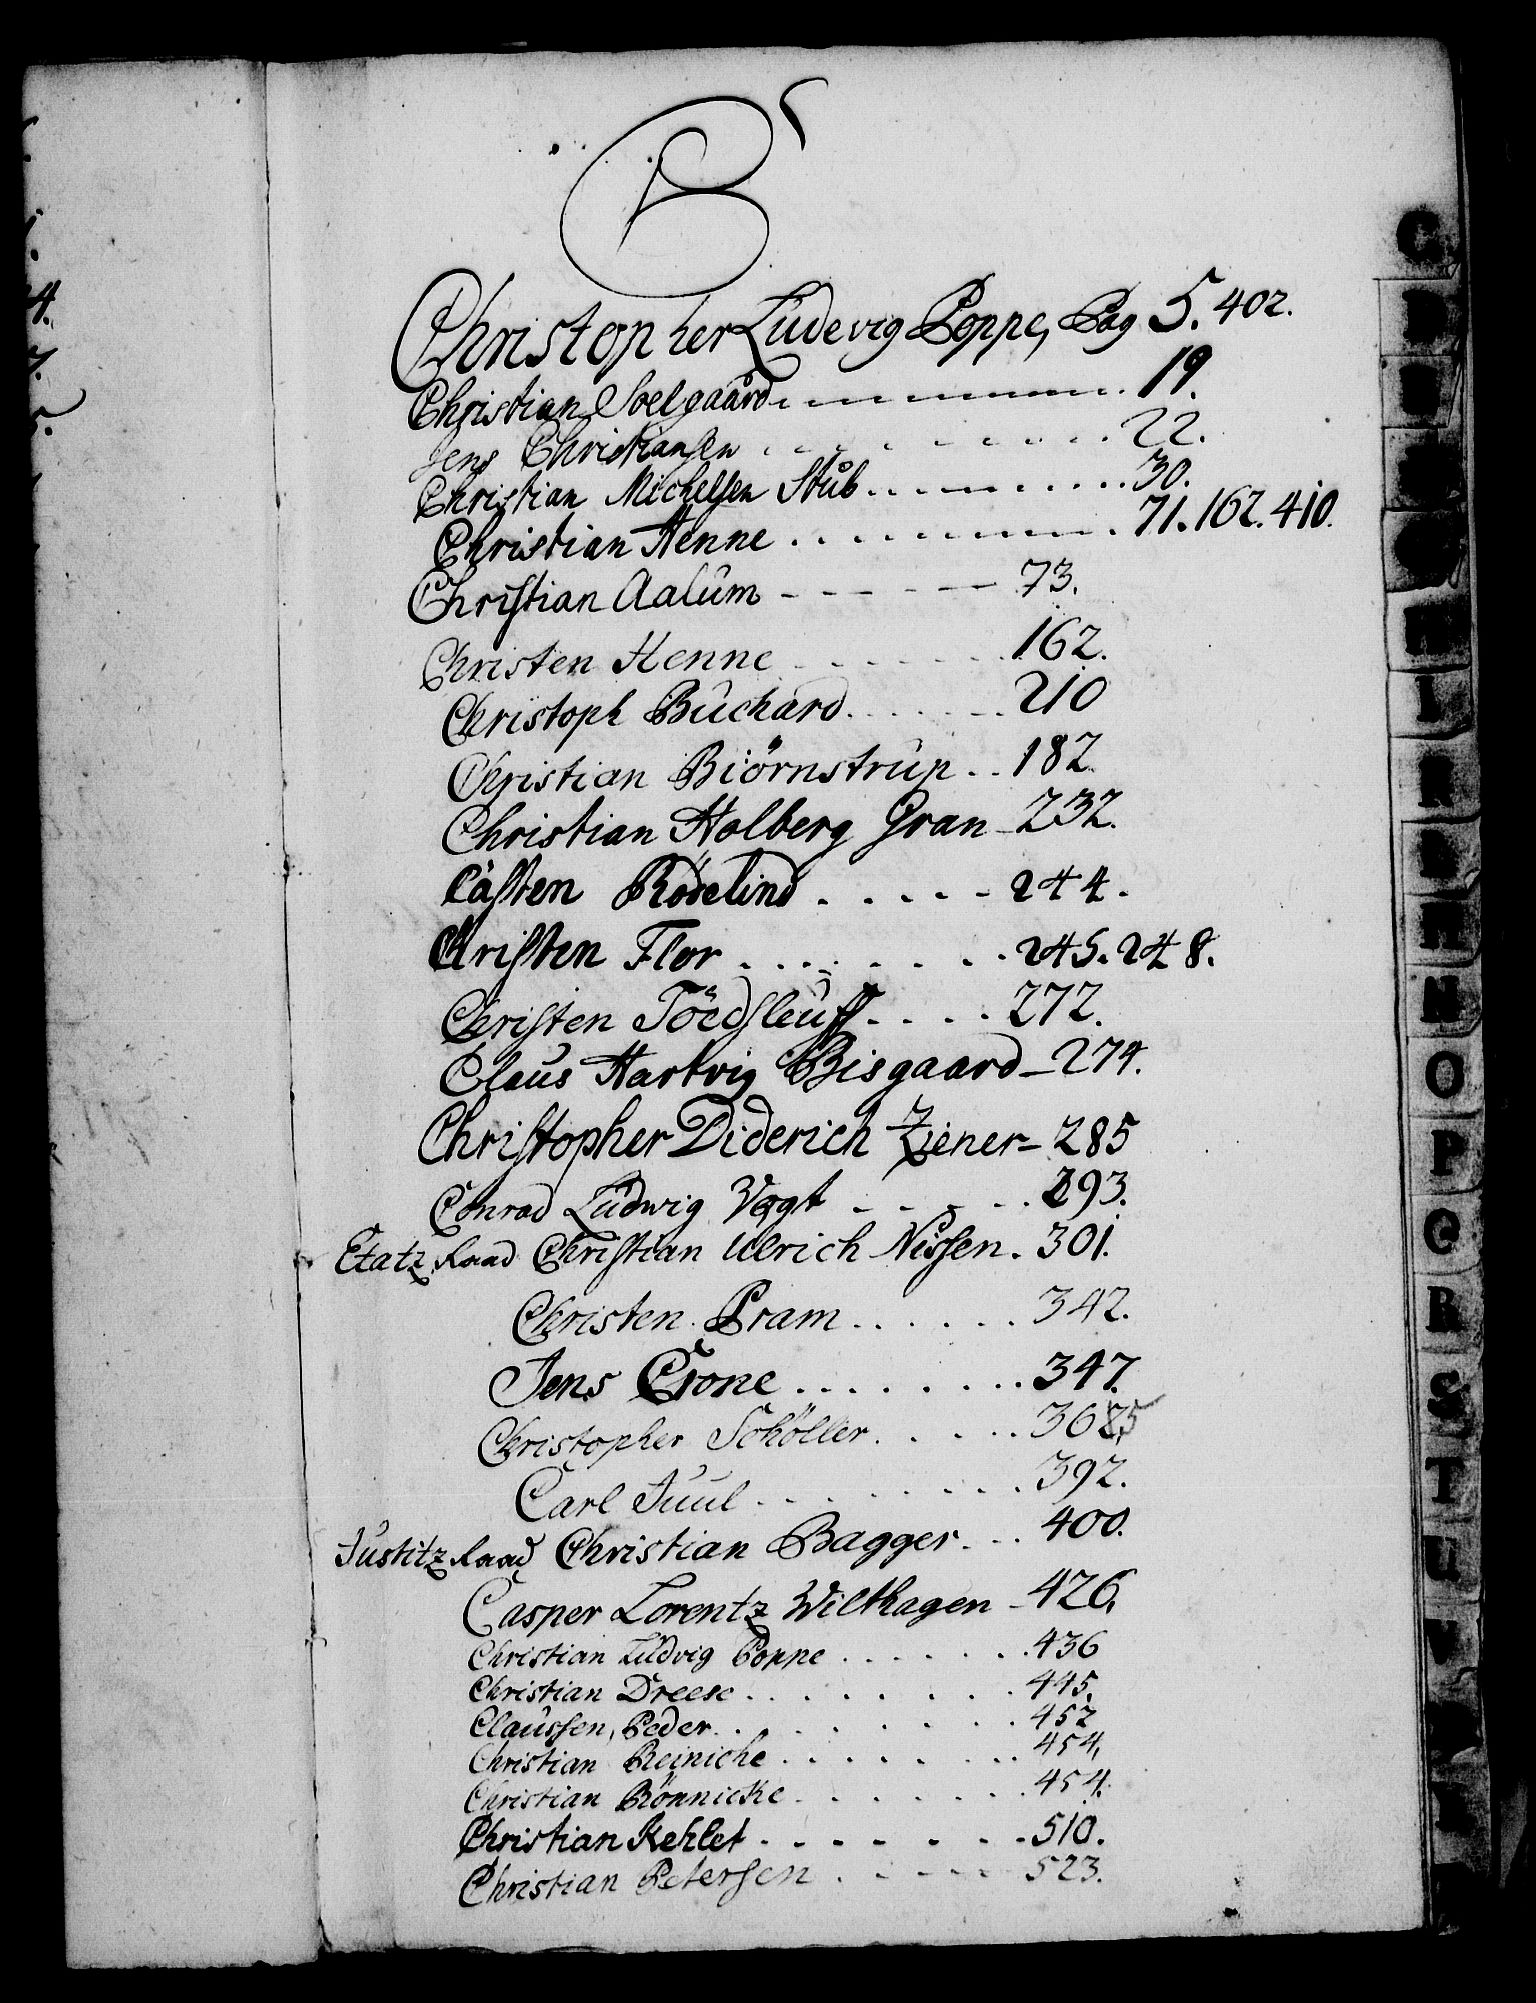 C
Christopher Ludevig Poppe, Pag 5. 402.
Christian Soelgaard 19.
Jens Christiansen 22.
Christian Michelsen Stub 30.
Christian Henne 71. 162. 410.
Christian Aalum 73.
Christen Henne 162.
Christoph Buchard 210
Christian Biörnstrup 182
Christian Holberg Gran 232.
Casten Rödelind 244.
Christen Flor 245. 248.
Christen Töedsleuff 272.
Claus Hartvig Bisgaard 274.
Christopher Diderich Ziener 285
Conrad Ludwig Vogt 293.
Etatz Raad Christian Ulrich Nissen. 301.
Christen Pram 342.
Jens Crone 347.
Christopher Schöller
Carl Juul 392.
Justitz Raad Christian Bagger 400.
Casper Lorentz Wilthagen 426.
Christian Ludvig Poppe 436
Christian Dreese 445.
Claussen, Peder 452
Christian Reiniche 454.
Christian Rönnicke 454.
Christian Kehlet 510.
Christian Petersen 523.
C
H
I
R
N
N
O
P
Q
R
S
T
U
V